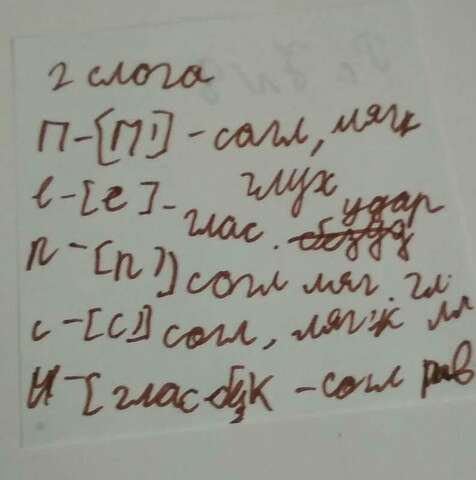 2 слога
п-[п'] - согл, мягк
глух
е-[е]- глас. удар
п-[п'] согл мяг. гл.
с-[с'] согл, мягк
и-[глас
-согл